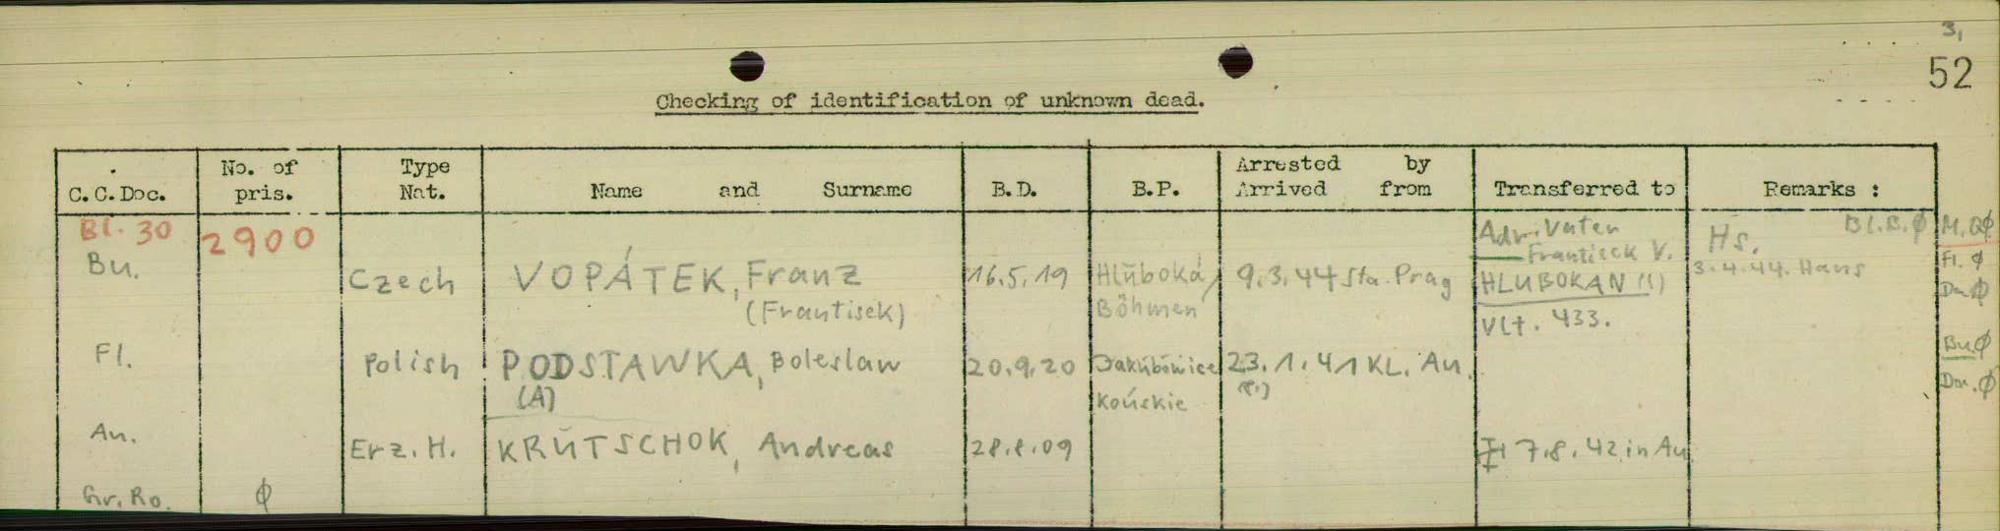 3,
52
Checking of identification of unknown dead.
C.C.Doc. No. of pris. Type Nat. Name and Surname B.D. B.P. Arrested by Arrived from Transferred to Remarks :
Bl. 30 2900 Adr. Vater Bl.B. Ø M.
Frantisek V. Hs. Fl. Ø
Bu. Czech VOPÁTEK, Franz 16.5.19 Hlŭboká/ 9.3.44 Sta. Prag HLUBOKAN (!) 3.4.44. Hans
(Frantisek) Böhmen Vlt. 433. Da. Ø
Bu. Ø
Fl. Polish PODSTAWKA, Boleslaw 20.9.20 Jakŭbowice 23.1.41 KL. Au.
(A) Końskie Da. Ø
Au. Erz. H. KRŬTSCHOK, Andreas 28.8.09 7.8.42 in Au
Gr. Ro. Ø